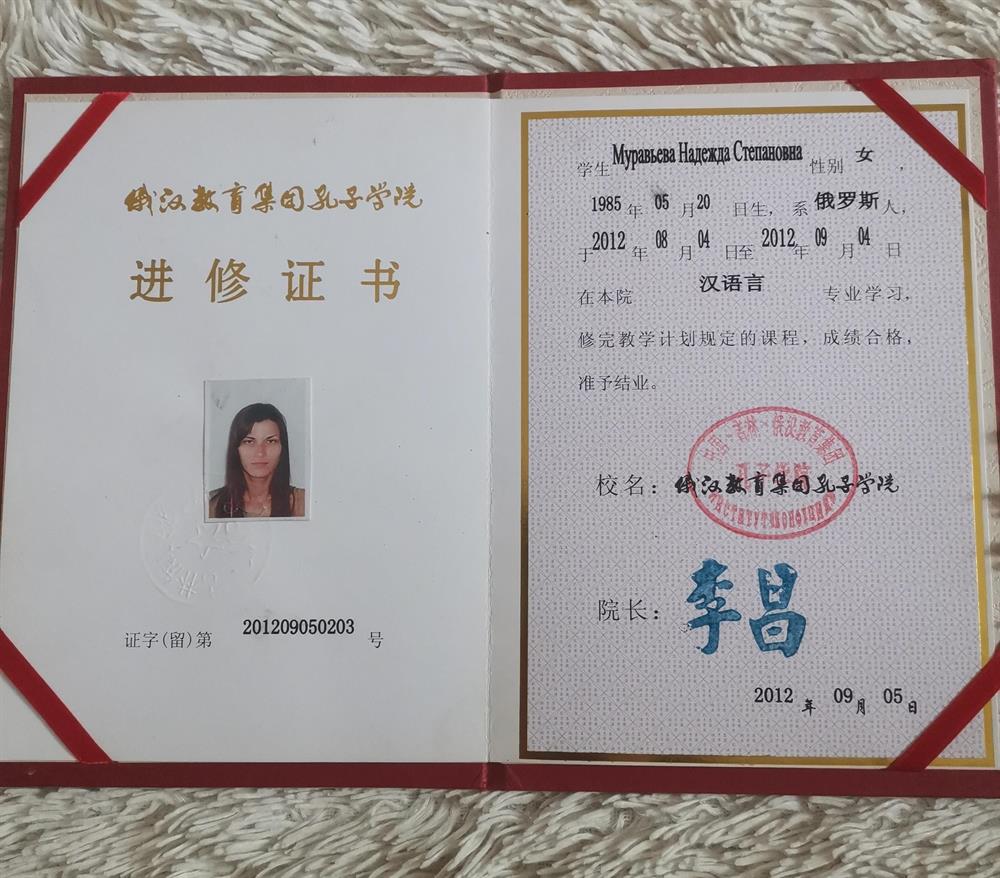 俄汉教育集团孔子学院
进修证书
证字(留)第 201209050203 号
学生 Муравьева Надежда Степановна 性别 女 ，
1985 年 05 月 20 日生，系 俄罗斯 人，
于 2012 年 08 月 04 日至 2012 年 09 月 04 日
在本院 汉语言 专业学习，
修完教学计划规定的课程，成绩合格，
准予结业。
中国·吉林·俄汉教育集团
孔子学院
ИНСТИТУТ КОНФУЦИЯ
校名：俄汉教育集团孔子学院
院长：李昌
2012 年 09 月 05 日